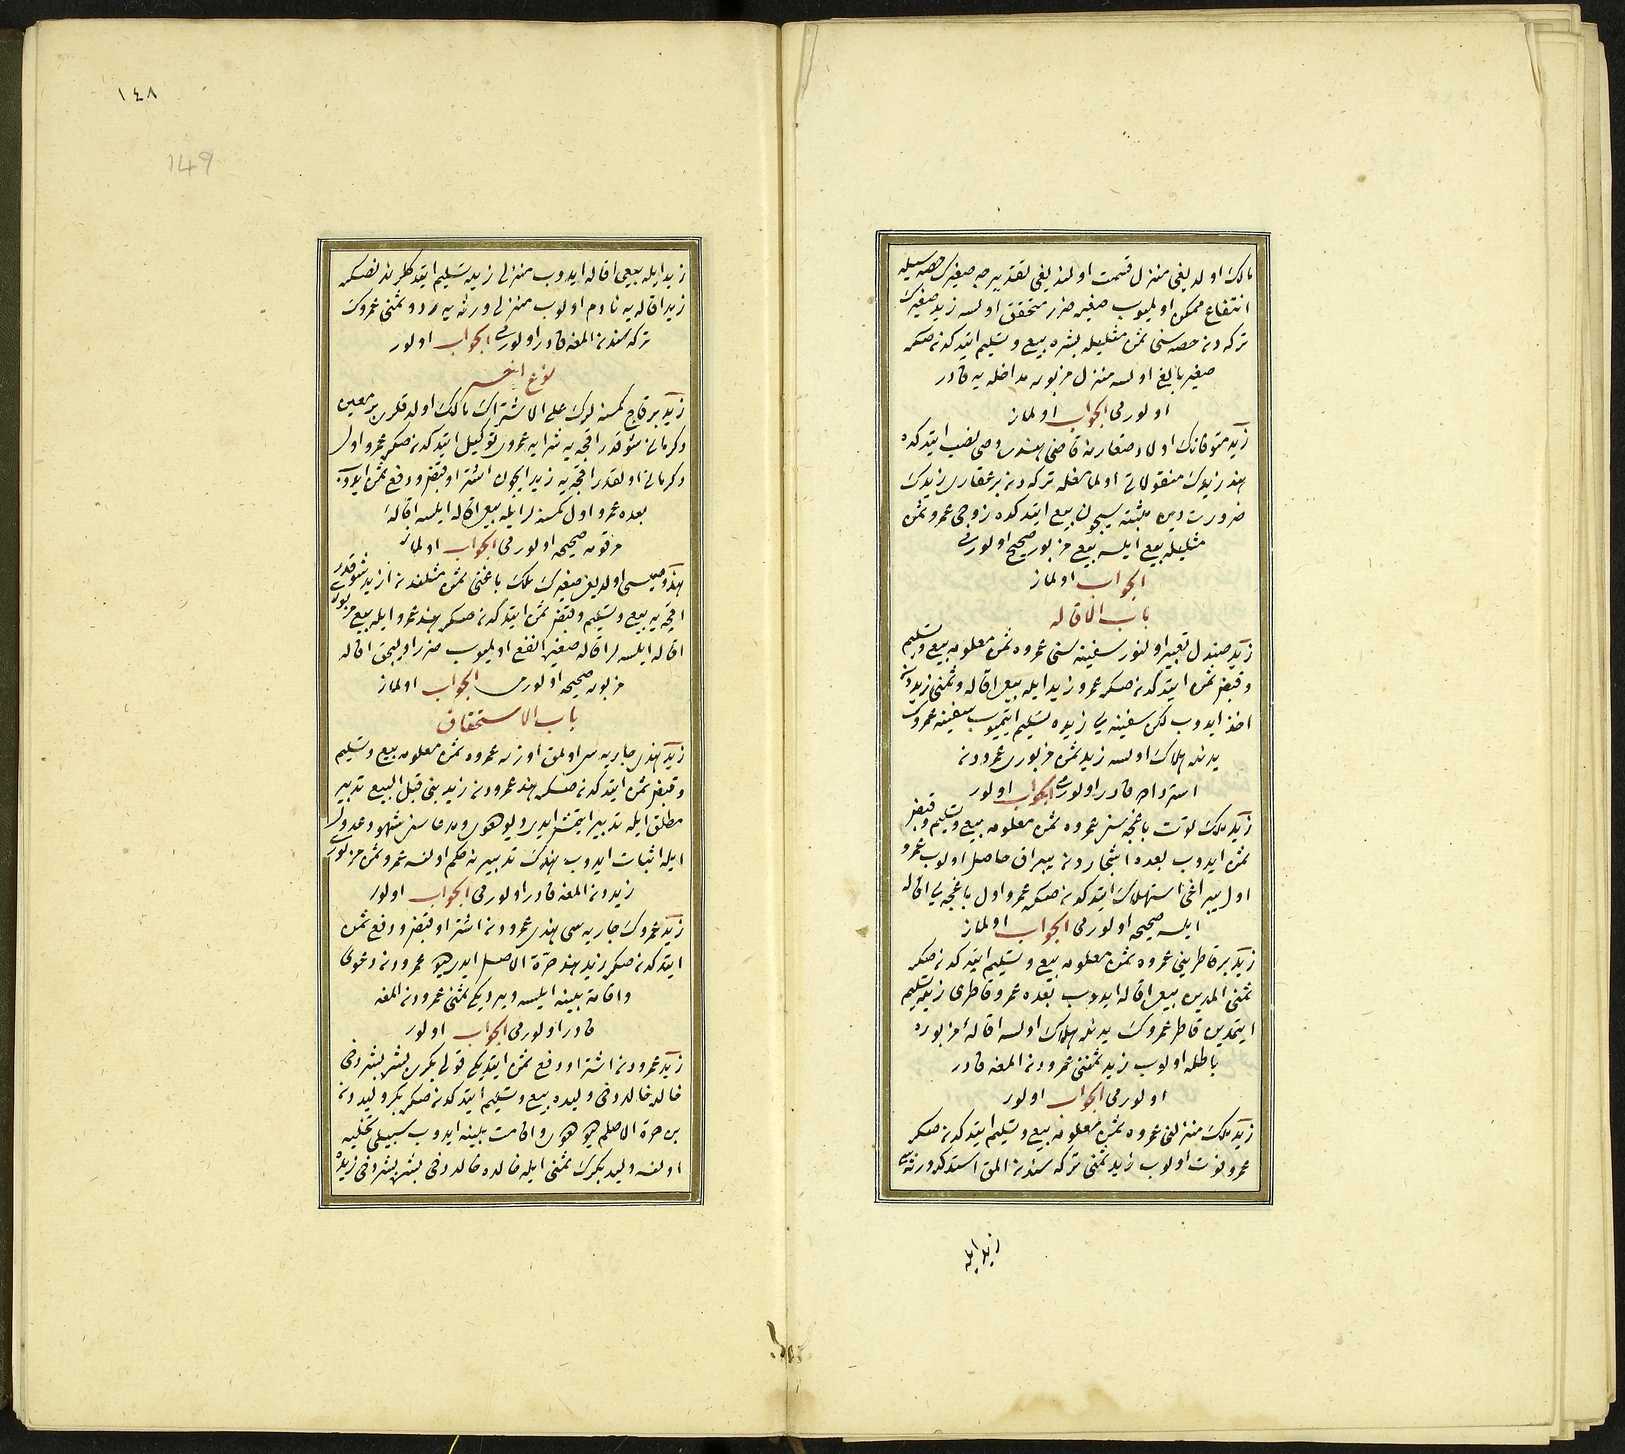 مالك اولدیغی منزل قسمت اولندیغی تقدیرجه صغیرك حصه سیله
انتفاع ممكن اولمیوب صغیره ضرر متحقق اولسه زید صغیرك
تركه دن حصه سنی ثمن مثلیله بشره بیع و تسلیم ایتدكدنصكره
صغیر بالغ اولسه منزل مزبوره مداخله یه قادر
اولورمی الجواب اولماز
زید متوفانك اولاد صغارینه قاضی هندی وصی نصب ایتدكده
هند زیدك منقولاتی اولماغله تركه دن بر عقاری زیدك
ضرورت دین مثبته سیچون بیع ایتدكده زوجی عمروه ثمن
مثلیله بیع ایلسه بیع مزبور صحیح اولورمی
الجواب اولماز
باب الاقاله
زید صندل تعبیر اولنور سفینه سنی عمروه ثمن معلومه بیع و تسلیم
و قبض ثمن ایتدكدنصكره عمرو زید ایله بیعی اقاله و ثمنی زیددن
اخذ ایدوب لكن سفینه یی زیده تسلیم ایتمیوب سفینه عمروك
یدنده هلاك اولسه زید ثمن مزبوری عمرودن
استرداده قادر اولورمی الجواب اولور
زید ملك توت باغچه سنی عمروه ثمن معلومه بیع و تسلیم و قبض
ثمن ایدوب بعده اشجاردن یپراق حاصل اولوب عمرو
اول یپراغی استهلاك ایتدكدنصكره عمرو اول باغچه یی اقاله
ایلسه صحیحه اولورمی الجواب اولماز
زید بر قاطرینی عمروه ثمن معلومه بیع و تسلیم ایتدكدنصكره
ثمنی المدین بیعی اقاله ایدوب بعده عمرو قاطری زیده تسلیم
ایتمدین قاطر عمروك یدنده هلاك اولسه اقالۀ مزبوره
باطله اولوب زید ثمننی عمرودن المغه قادر
اولورمی الجواب اولور
زید ملك منزلنی عمروه ثمن معلومه بیع و تسلیم ایتدكدنصكره
عمرو فوت اولوب زید ثمنی تركه سندن المق استدكده ورثه سی
زید ایله
١٤٨
149
زید ایله بیعی اقاله ایدوب منزلی زیده تسلیم ایتدكلرندنصكره
زید اقاله یه نادم اولوب منزلی ورثه یه رد و ثمنی عمروك
تركه سندن المغه قادر اولورمی الجواب اولور
نوع آخر
زید بر قاچ كمسنه لرك علی الاشتراك مالك اولدقلری بر معین
دكرمانی شو قدر اقچه یه شرایه عمروی توكیل ایتدكدنصكره عمرو اول
دكرمانی اولقدر اقچه یه زید ایچون اشترا و قبض و دفع ثمن ایدوب
بعده عمرو اول كمسنه لر ایله بیعی اقاله ایلسه اقالۀ
مرقومه صحیحه اولورمی الجواب اولماز
هند وصیسی اولدیغی صغیرك ملك باغنی ثمن مثلندن ازید شو قدر
اقچه یه بیع و تسلیم و قبض ثمن ایتدكدنصكره هند عمرو ایله بیع مزبوری
اقاله ایلسه لر اقاله صغیره انفع اولمیوب ضرر اولیجق اقالۀ
مزبوره صحیحه اولورمی الجواب اولماز
باب الاستحقاق
زید هندی جاریه سی اولمق اوزره عمروه ثمن معلومه بیع و تسلیم
و قبض ثمن ایتدكدنصكره هند عمرودن زید بنی قبل البیع تدبیر
مطلق ایله تدبیر ایتمش ایدی دیو دعوی و مدعاسنی شهود عدول
ایله اثبات ایدوب هندك تدبیرینه حكم اولنسه عمرو ثمن مزبوری
زیددن المغه قادر اولورمی الجواب اولور
زید عمروك جاریه سی هندی عمرودن اشترا و قبض و دفع ثمن
ایتدكدنصكره زید هند حرة الاصل ایدی دیو عمرودن دعوی
و اقامة بینه ایلسه ویردیكی ثمنی عمرودن المغه
قادر اولورمی الجواب اولور
زید عمرودن اشترا و دفع ثمن ایتدیكی قولی بكره بكر بشره بشر دخی
خالده خالد دخی ولیده بیع و تسلیم ایتدكدنصكره بكر ولیددن
بن حرة الاصلم دیو دعوی و اقامت بینه ایدوب سبیلی تخلیه
اولنسه ولید بكرك ثمنی ایله خالده خالد دخی بشره بشر دخی زیده